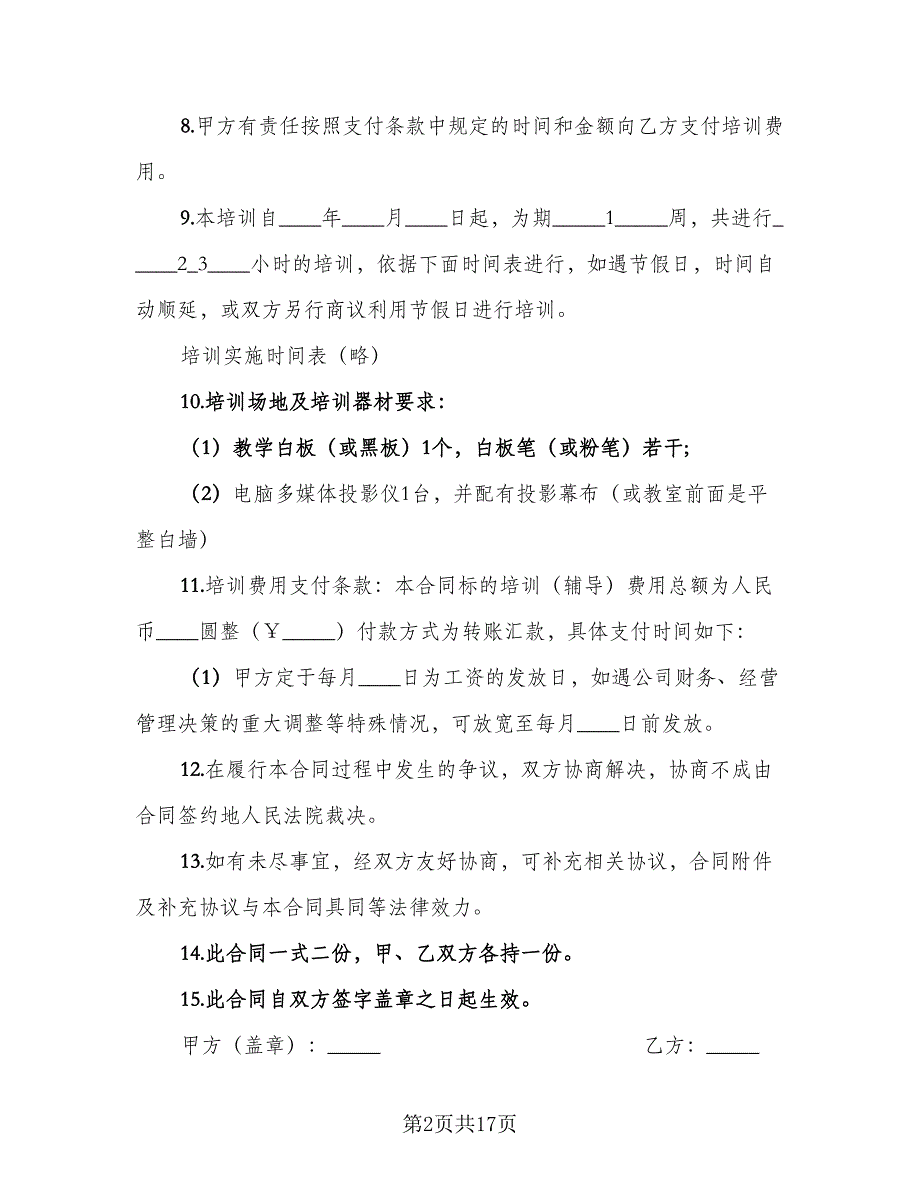 8.甲方有责任按照支付条款中规定的时间和金额向乙方支付培训费
用。
9.本培训自____年____月____日起，为期_____1_____周，共进行_
____2_3____小时的培训，依据下面时间表进行，如遇节假日，时间自
动顺延，或双方另行商议利用节假日进行培训。
培训实施时间表（略）
10.培训场地及培训器材要求：
（1）教学白板（或黑板）1个，白板笔（或粉笔）若干;
（2）电脑多媒体投影仪1台，并配有投影幕布（或教室前面是平
整白墙）
11.培训费用支付条款：本合同标的培训（辅导）费用总额为人民
币____圆整（￥_____）付款方式为转账汇款，具体支付时间如下：
（1）甲方定于每月____日为工资的发放日，如遇公司财务、经营
管理决策的重大调整等特殊情况，可放宽至每月____日前发放。
12.在履行本合同过程中发生的争议，双方协商解决，协商不成由
合同签约地人民法院裁决。
13.如有未尽事宜，经双方友好协商，可补充相关协议，合同附件
及补充协议与本合同具同等法律效力。
14.此合同一式二份，甲、乙双方各持一份。
15.此合同自双方签字盖章之日起生效。
甲方（盖章）：_____ 乙方：_____
第2页共17页